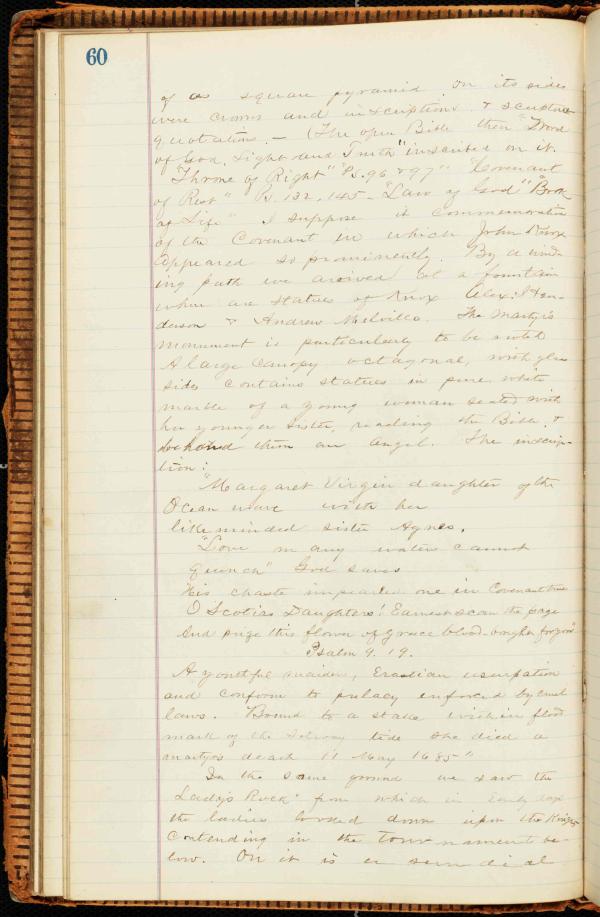 60
of a square pyramid. On its sides
were crowns and inscriptions & scripture
quotations. — (The open Bible then "Word
of God, Light and Truth" inscribed on it.
"Throne of Right" "Ps. 96 & 97" "Covenant
of Rest" Ps. 132, 145 - "Law of God" "Book
of Life" I suppose it commemorative
of the Covenant in which John Knox
appeared so prominently. By a wind-
ing path we arrived at a fountain
where are statues of Knox Alex: Hen-
derson & Andrew Melville. The Martyr's
monument is particularly to be noted
A large canopy octagonal, with glass
sides contains statues in pure white
marble of a young woman seated with
her younger sister, reading the Bible, &
behind them an angel. The inscrip-
tion:
"Margaret Virgin daughter of the
Ocean wave with her
like minded sister Agnes.
"Love many waters cannot
quench" God saves
His chaste impearled one in Covenant true
O Scotia's Daughters! Earnest scan the page
And prize this flower of Grace blood-bought for you"
Psalm 9. 19.
A youthful maiden, Erastian usurpation
and conform to prelacy enforced by cruel
laws. "Bound to a stake within flood
mark of the Solway tide she died a
martyr's death 11 May 1685"
In the same ground we saw the
Lady's Rock" from which in early days
the ladies looked down upon the Knights
contending in the tournament be-
low. On it is a sun dial